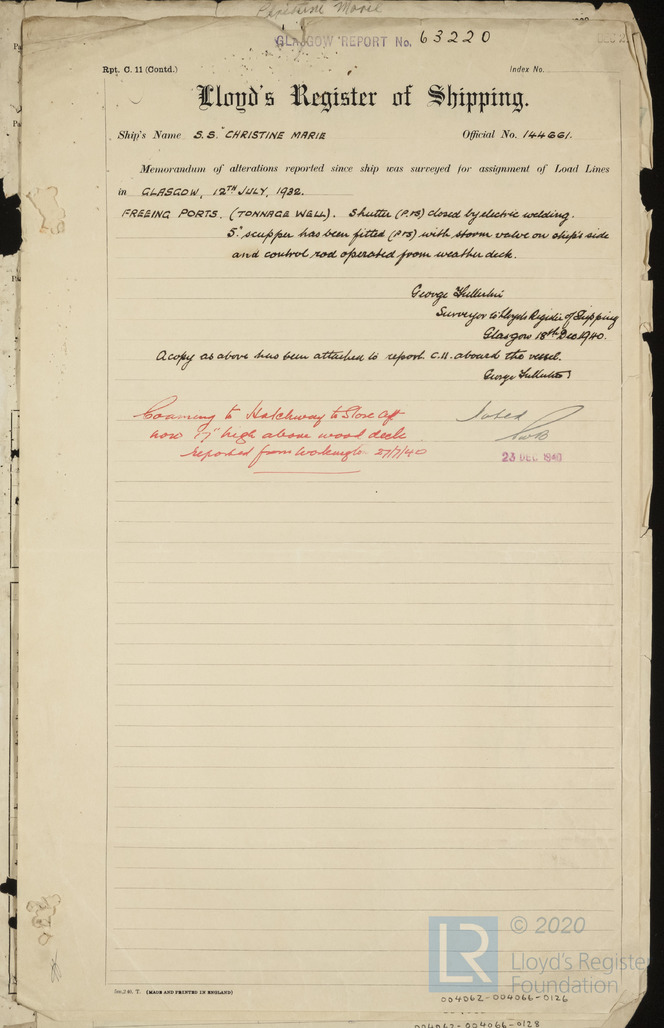 Christine Marie
GLASGOW REPORT No. 63220
DEC 2
Rpt. C. 11 (Contd.)
Index No.
Lloyd's Register of Shipping.
Ship's Name S.S. "CHRISTINE MARIE
Official No. 144661.
Memorandum of alterations reported since ship was surveyed for assignment of Load Lines
in GLASGOW, 12TH JULY, 1932.
FREEING PORTS. (TONNAGE WELL). Shutter (P.&S) closed by electric welding.
5" scupper has been fitted (P&S) with storm valve on ship's side
and control rod operated from weather deck.
George
Surveyor to Lloyds Register of Shipping
Glasgow 18th Dec 1940.
A copy as above has been attached to report C.11. aboard the vessel.
George
Coaming to Hatchway to Store aft
now 17" high above wood deck
reported from Workington 27/7/40
Noted
23 DEC 1940
5m,2.40. T. (MADE AND PRINTED IN ENGLAND)
LR
© 2020
Lloyd's Register
Foundation
004062-004066-0126
004062-004066-0128